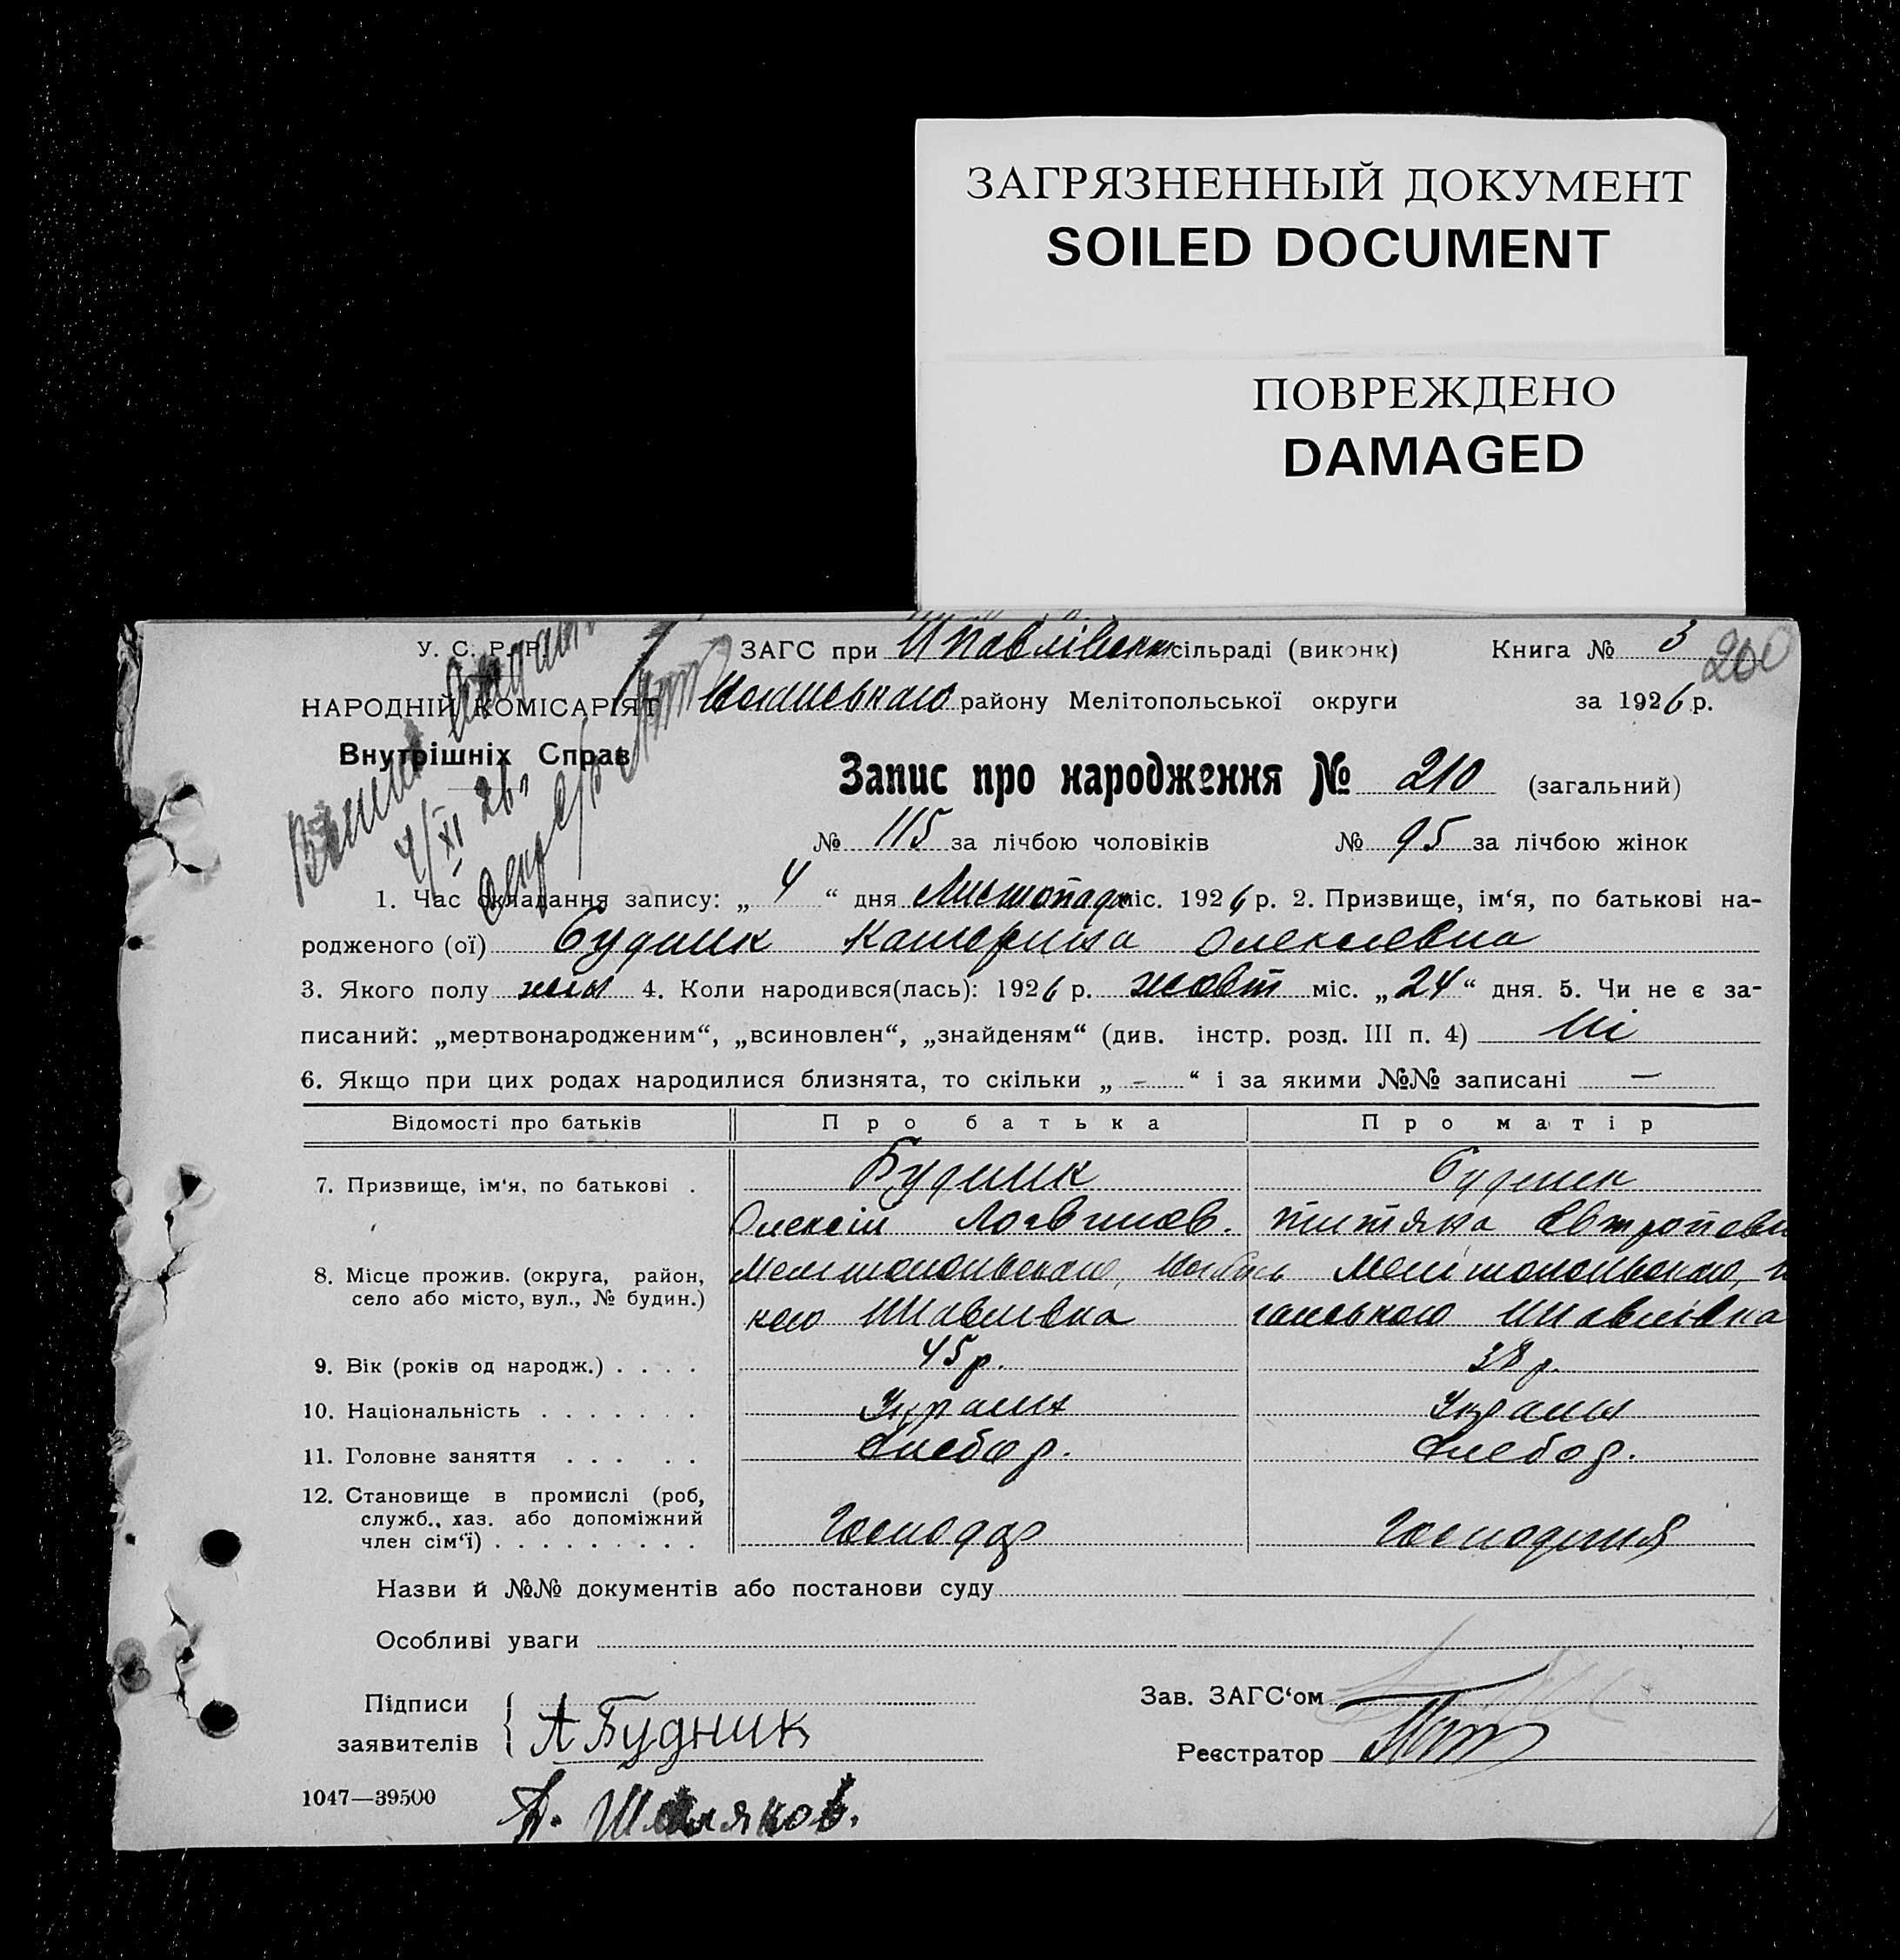 ЗАГРЯЗНЕННЫЙ ДОКУМЕНТ
SOILED DOCUMENT
ПОВРЕЖДЕНО
DAMAGED
У. С. Р. Р.
ЗАГС при сільраді (виконк) Книга № 3 200
НАРОДНІЙ КОМІСАРІЯТ
району Мелітопольської округи за 1926 р.
Внутрішніх Справ
4/XI 26
Запис про народження № 210 (загальний)
№ 115 за лічбою чоловіків № 95 за лічбою жінок
1. Час складання запису: „ 4 “ дня Листопада міс. 1926 р. 2. Призвище, ім‘я, по батькові на-
родженого (ої) Будник Катерина Олексіевна
3. Якого полу жін 4. Коли народився(лась): 1926 р. жовт міс. „24“ дня. 5. Чи не є за-
писаний: „мертвонародженим“, „всиновлен“, „знайденям“ (див. інстр. розд. III п. 4) Ні
6. Якщо при цих родах народилися близнята, то скільки „ – “ і за якими №№ записані —
Відомості про батьків Про батька Про матір
7. Призвище, ім‘я, по батькові . Будник Будник
Олексій Логвинов.
8. Місце прожив. (округа, район,
село або місто, вул., № будин.)
9. Вік (років од народж.) . . . . 45 р. 38 р.
10. Національність . . . . . . . Україн Україн
11. Головне заняття . . . . . Хлебор. Хлебор.
12. Становище в промислі (роб,
служб., хаз. або допоміжний
член сім‘ї) . . . . . . . . . Господар Господиня
Назви й №№ документів або постанови суду
Особливі уваги
Підписи
заявителів
А Будник
Зав. ЗАГС‘ом
Реєстратор
1047—39500